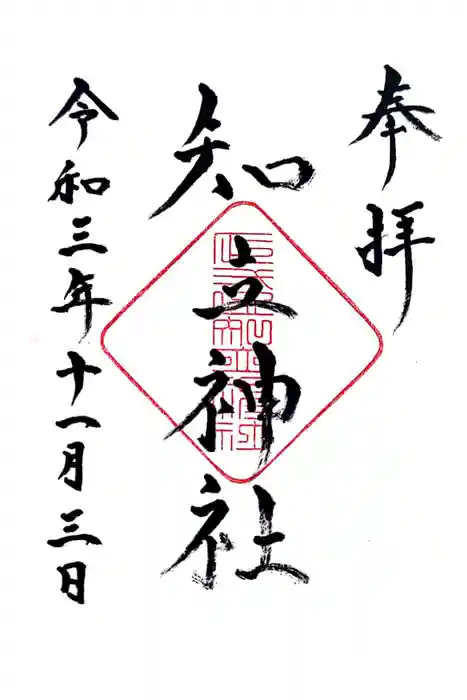 奉拝
知立神社
令和三年十一月三日